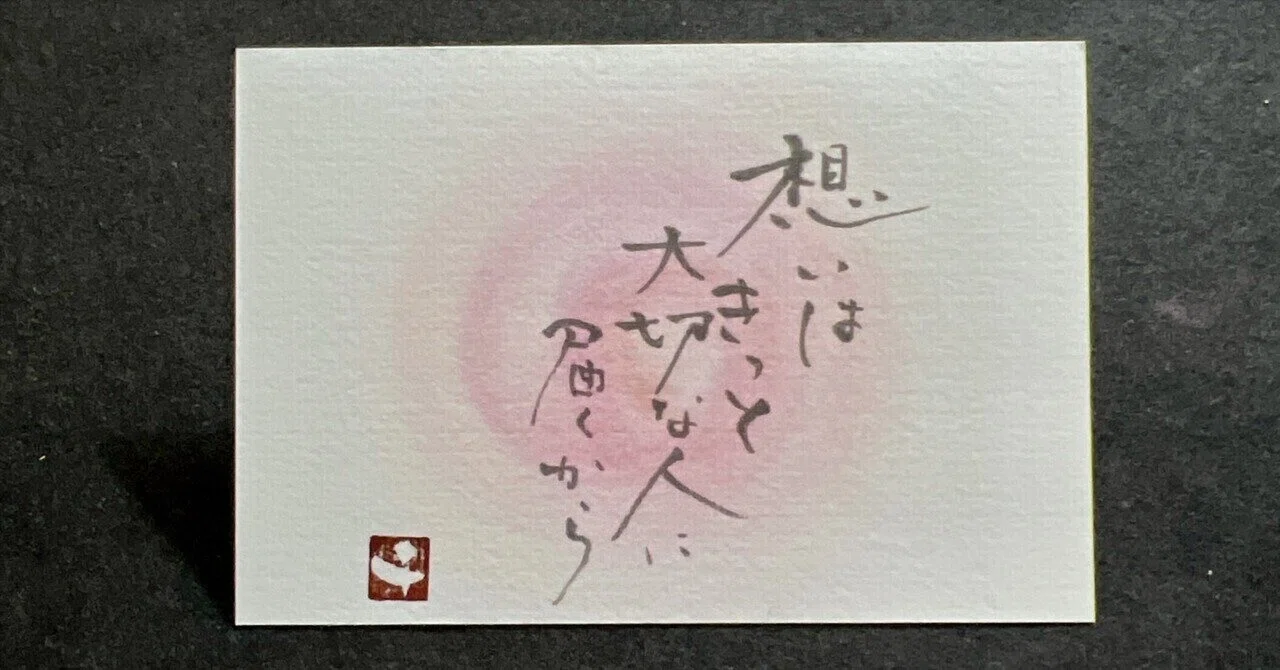 想いは
きっと
大切な人に
届くから